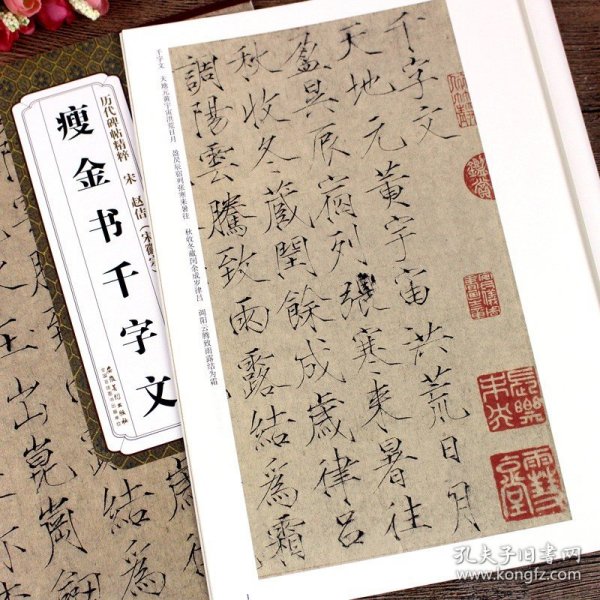 千字文
天地元黄宇宙洪荒日月
盈昃辰宿列張寒来暑往
秋收冬蔵閏餘成歲律吕
調陽雲騰致雨露結爲霜
千字文 天地元黄宇宙洪荒日月 盈昃辰宿列张寒来暑往 秋收冬藏闰余成岁律吕 调阳云腾致雨露结为霜
历代碑帖精粹 宋 赵佶（宋徽
瘦金书千字文
安徽美术出版社
結爲
玉出崑崗
孔夫子旧书网
www.kongfz.com